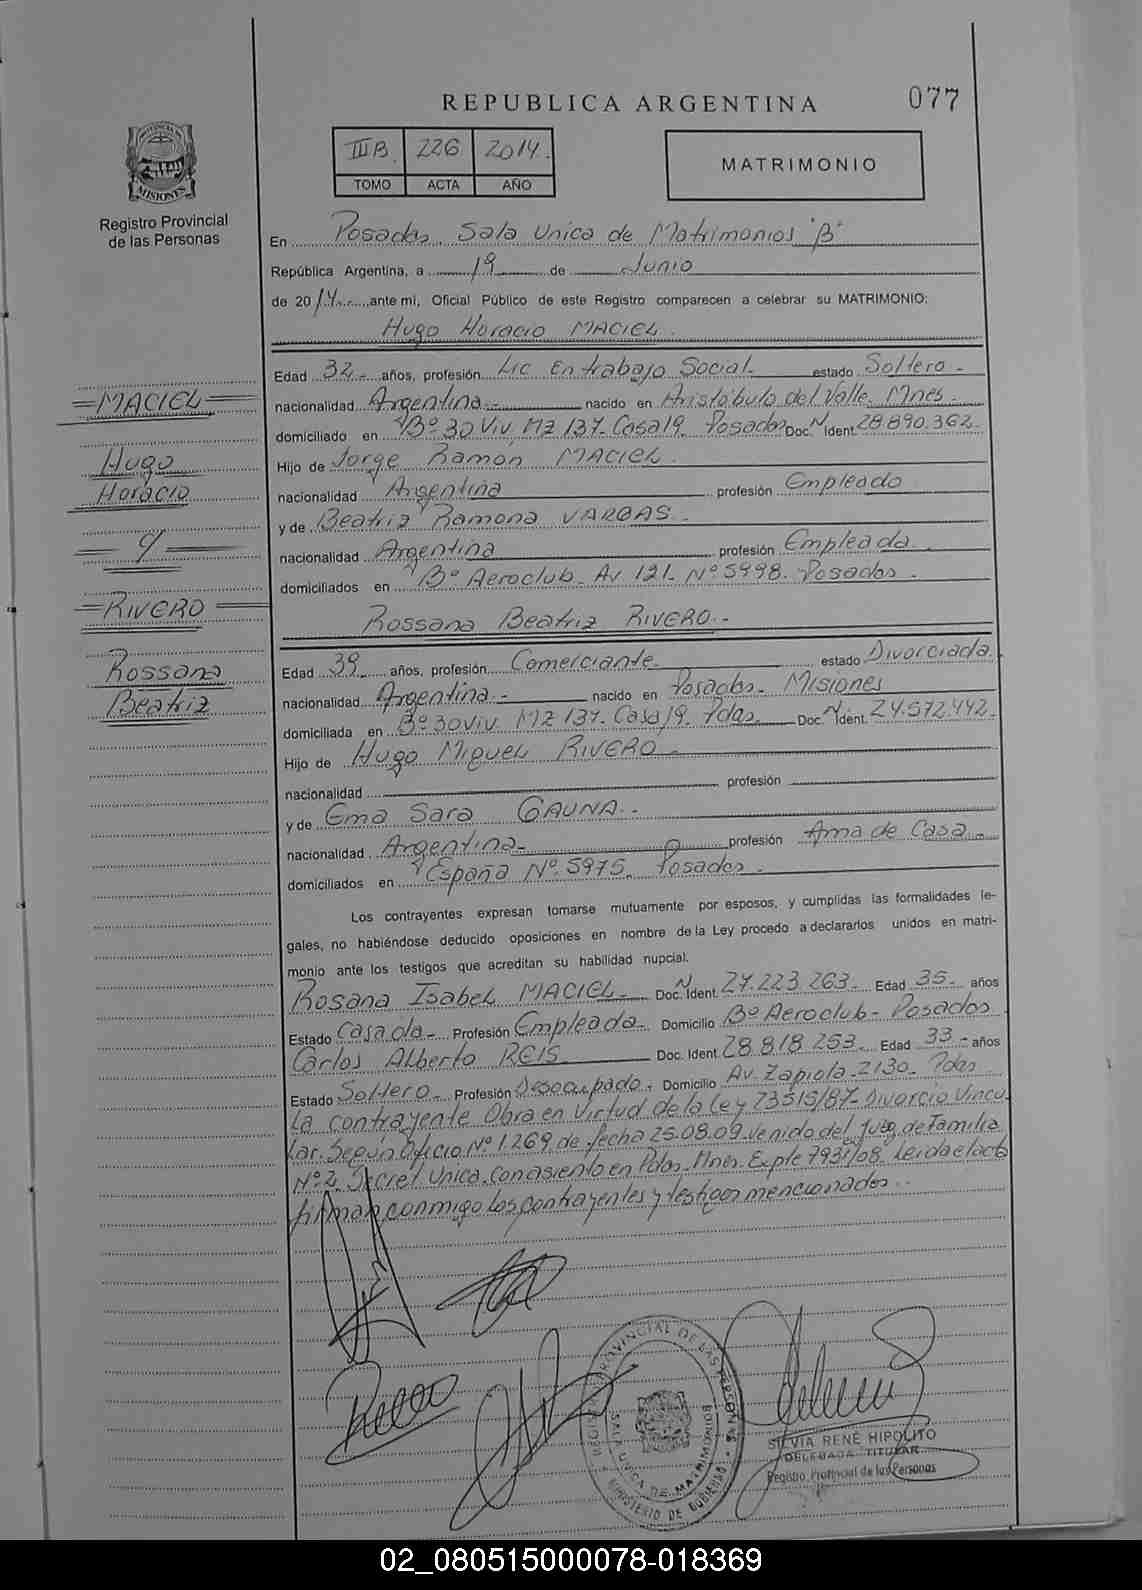 REPUBLICA ARGENTINA
077
PROVINCIA DE
MISIONES
Registro Provincial
de las Personas
III B. 226 2014.
TOMO ACTA AÑO
MATRIMONIO
En Posadas, Sala Unica de Matrimonios "B"
República Argentina, a 19 de Junio
de 2014 ante mi, Oficial Público de este Registro comparecen a celebrar su MATRIMONIO:
Hugo Horacio MACIEL.
Edad 32 años, profesión Lic En trabajo Social estado Soltero -
nacionalidad Argentina.- nacido en Aristóbulo del Valle. Mnes.
domiciliado en Bº 30 Viv. MZ 137. Casa 19. Posadas Doc. N Ident. 28.890.362.
Hijo de Jorge Ramón MACIEL.
nacionalidad Argentina profesión Empleado
y de Beatriz Ramona VARGAS.
nacionalidad Argentina profesión Empleada.
domiciliados en Bº Aeroclub. Av 121. Nº 5998. Posadas.
Rossana Beatriz RIVERO.-
Edad 39 años, profesión Comerciante estado Divorciada.
nacionalidad Argentina.- nacido en Posadas. Misiones
domiciliada en Bº 30 viv. MZ 137. Casa 19. Pdas. Doc. N Ident. 24.572.442.
Hijo de Hugo Miguel RIVERO.
nacionalidad profesión
y de Ema Sara GAUNA.
nacionalidad Argentina.- profesión Ama de Casa.
domiciliados en España Nº 5975. Posadas.
Los contrayentes expresan tomarse mutuamente por esposos, y cumplidas las formalidades le-
gales, no habiéndose deducido oposiciones en nombre de la Ley procedo a declararlos unidos en matri-
monio ante los testigos que acreditan su habilidad nupcial.
Rosana Isabel MACIEL. Doc. N Ident. 27.223.263. Edad 35 años
Estado Casada Profesión Empleada. Domicilio Bº Aeroclub - Posadas
Carlos Alberto REIS Doc. Ident 28 818 253. Edad 33 - años
Estado Soltero. Profesión Desocupado. Domicilio Av. Zapiola 2130. Pdas
La contrayente Obra en virtud de la Ley 23515/87. Divorcio Vincu
lar. Según Oficio Nº 1.269 de fecha 25.08.09 venido del Juzg. de Familia
Nº 2. Secret. Unica. Con asiento en Pdas. Mnes. Expte 7931/08. Leida el acta
firman conmigo los contrayentes y testigos mencionados.
=MACIEL=
Hugo
Horacio
=RIVERO=
Rossana
Beatriz
REGISTRO PROVINCIAL DE LAS PERSONAS
SALA UNICA DE MATRIMONIOS
MINISTERIO DE GOBIERNO
SILVIA RENÉ HIPOLITO
DELEGADA TITULAR
Registro Provincial de las Personas
02_080515000078-018369